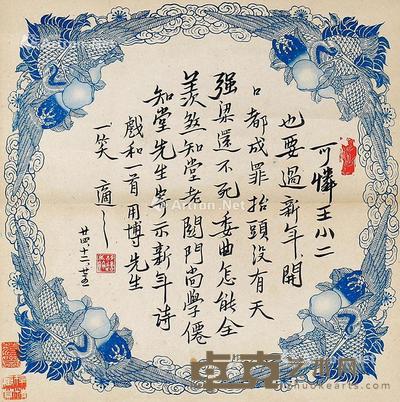 可憐王小二
也要過新年、開
口都成罪抬頭没有天
强梁還不死委曲怎能全
羨煞知堂老關門尚學僊
知堂先生寄示新年詩
戲和一首用博先生
一笑 適之
廿四、十二、廿五
卓克艺术网